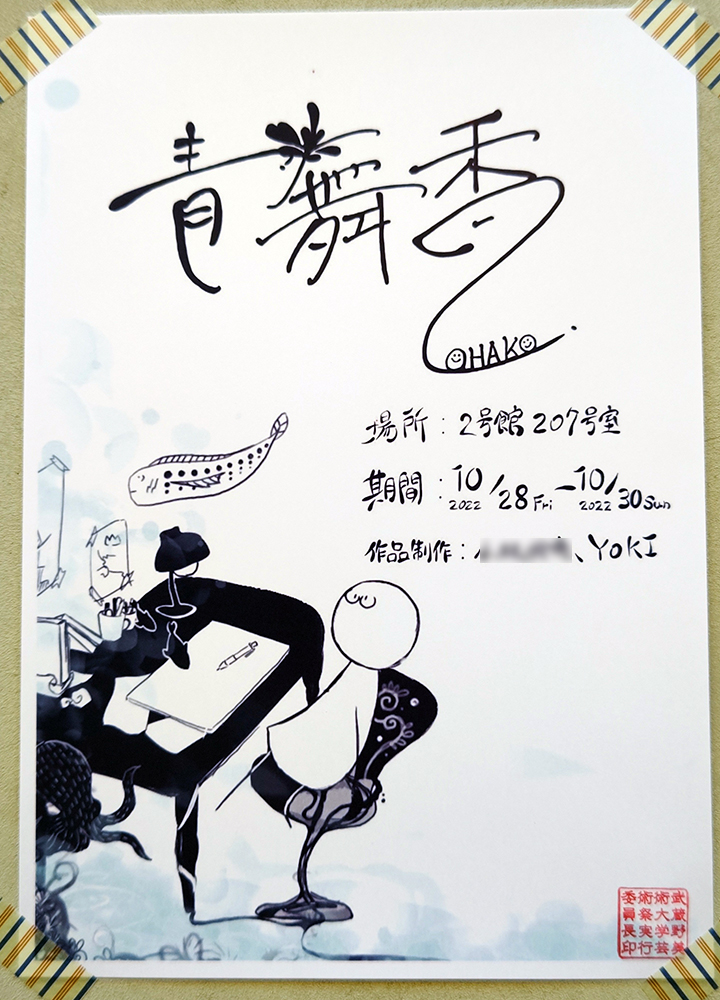 青舞香
OHAKO
場所：2号館207号室
期間：10/28 Fri 2022 – 10/30 Sun 2022
作品制作：、YOKI
武蔵野美
術大学芸
術祭実行
委員長印